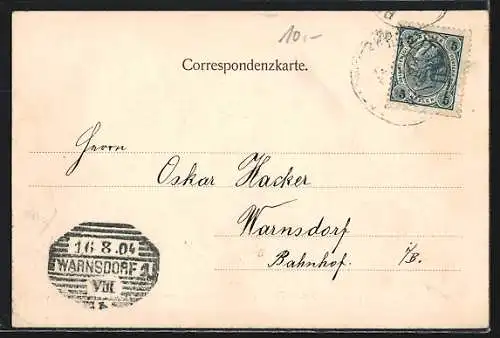 10.-
Correspondenzkarte.
5 5
5 5
Herrn
Oskar Hacker
Warnsdorf
Bahnhof. i/B.
16.8.04
WARNSDORF 1
VIII